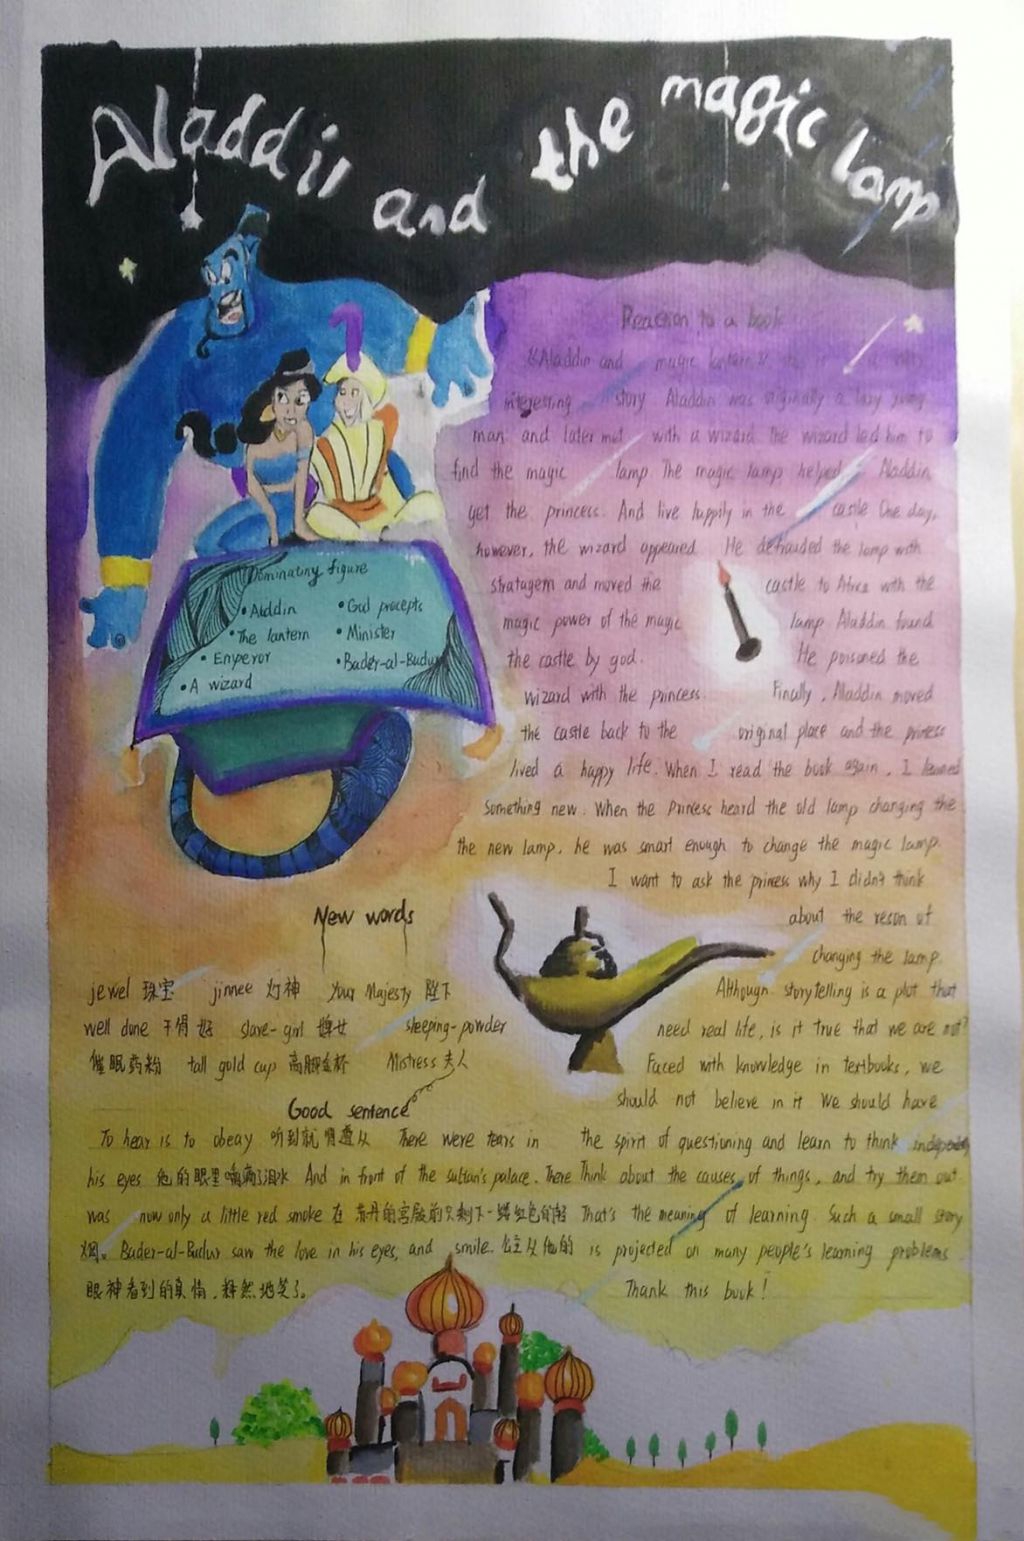 Aladdin and the magic lamp
Reaction to a book
《Aladdin and magic lantern》
interesting story Aladdin was originally a lazy young
man and later met with a wizard. The wizard led him to
find the magic lamp The magic lamp helped Aladdin
get the princess. And live happily in the castle One day,
however, the wizard appeared He defrauded the lamp with
stratagem and moved the castle to Africa with the
magic power of the magic lamp Aladdin found
the castle by god. He poisoned the
wizard with the princess. Finally, Aladdin moved
the castle back to the original place and the princess
lived a happy life. When I read the book again, I learned
something new. When the Princess heard the old lamp changing the
the new lamp, he was smart enough to change the magic lamp.
I want to ask the princess why I didn't think
about the reson of
changing the lamp.
Although storytelling is a plot that
need real life, is it true that we are not?
Faced with knowledge in textbooks, we
should not believe in it We should have
the spirit of questioning and learn to think
Think about the causes of things, and try them out
That's the meaning of learning. Such a small story
is projected on many people's learning problems
Thank this book!
Dominating figure
•Aladdin •God precepts
•The lantern •Minister
•Emperor •Bader-al-Budur
•A wizard
New words
jewel 珠宝 jinnee 灯神 Your Majesty 陛下
well done 干得好 slave-girl 婢女 sleeping-powder
催眠药粉 tall gold cup 高脚金杯 Mistress 夫人
Good sentence
To hear is to obeay 听到就照遵从 There were tears in
his eyes 他的眼里噙满了泪水 And in front of the sultan's palace. There
was now only a little red smoke 在苏丹的宫殿前只剩下一缕红色的
烟。Bader-al-Budur saw the love in his eyes, and smile. 公主从他的
眼神看到的真情,释然地笑了。